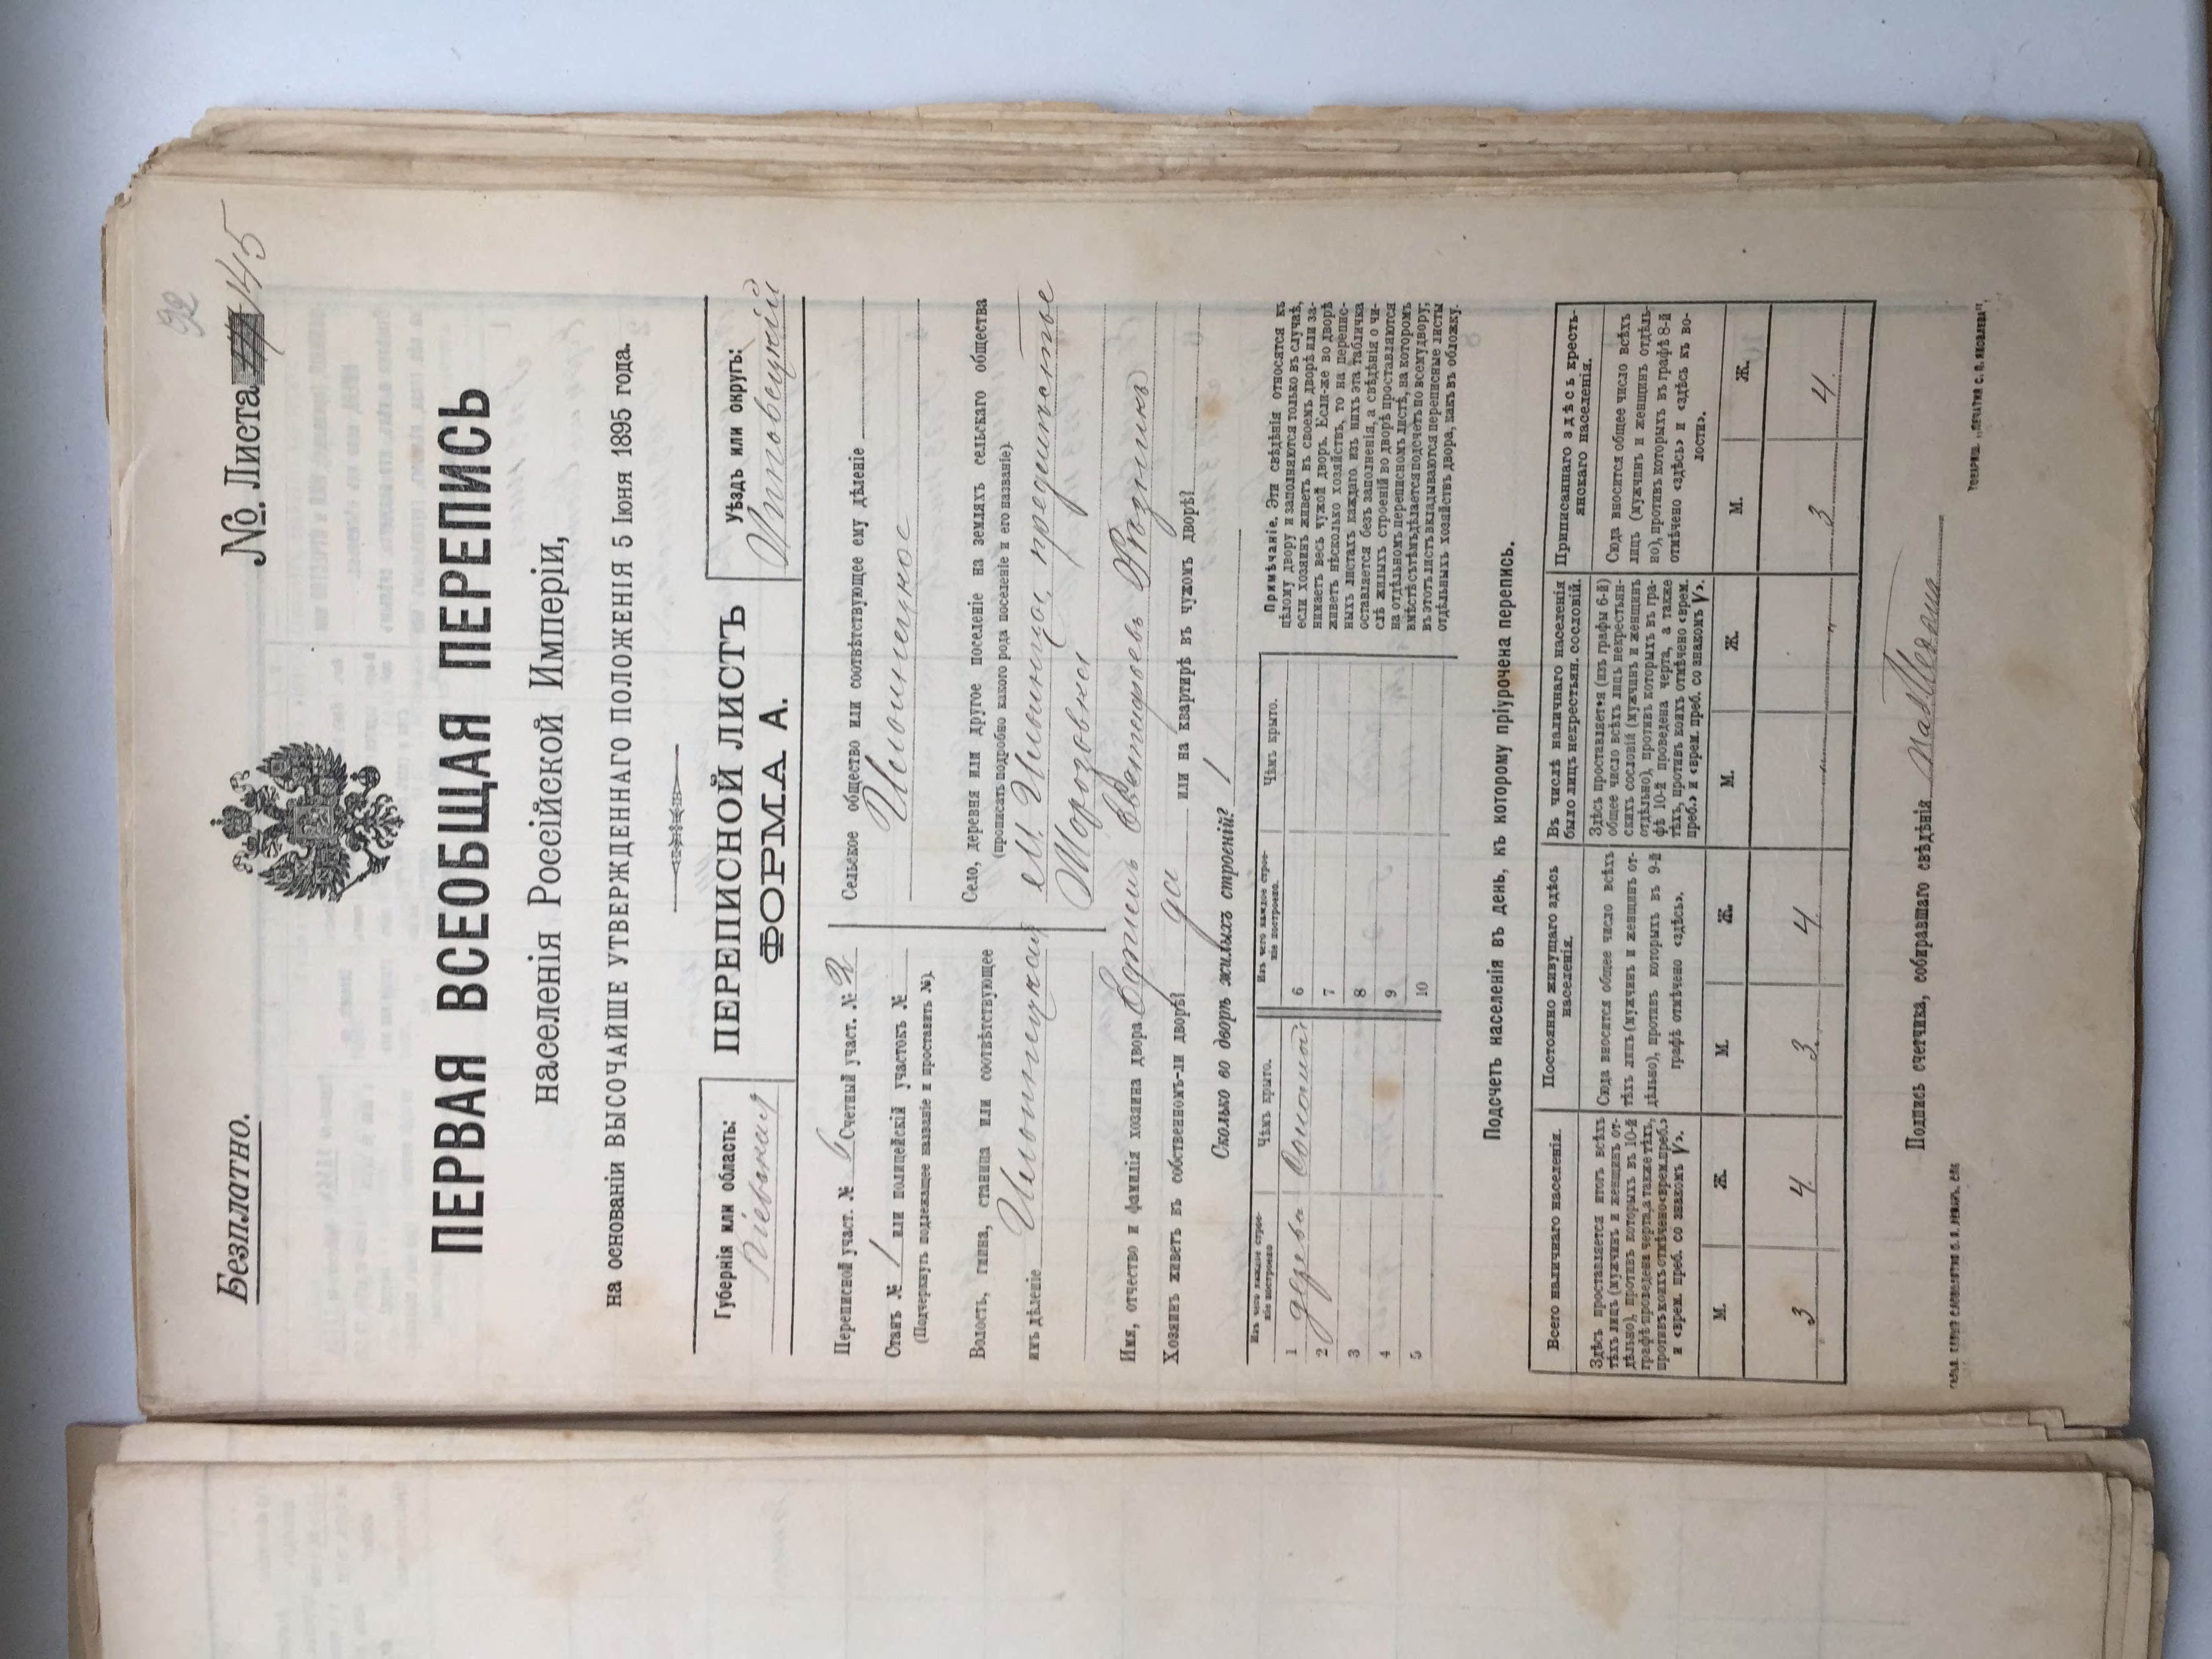 92
Безплатно.
№ Листа 145
ПЕРВАЯ ВСЕОБЩАЯ ПЕРЕПИСЬ
населенія Россійской Имперіи,
на основаніи ВЫСОЧАЙШЕ УТВЕРЖДЕННАГО ПОЛОЖЕНІЯ 5 Іюня 1895 года.
Губернія или область:
Кіевская
ПЕРЕПИСНОЙ ЛИСТЪ
ФОРМА А.
Уѣздъ или округъ:
Липовецкій
Переписной участ. № 6 Счетный участ. № 2
Станъ № 1 или полицейскій участокъ №
(Подчеркнуть подлежащее названіе и проставить №).
Волость, гмина, станица или соотвѣтствующее
имъ дѣленіе Ильинецкая
Сельское общество или соотвѣтствующее ему дѣленіе
Ильинецкое
Село, деревня или другое поселеніе на земляхъ сельскаго общества
(прописать подробно какого рода поселеніе и его названіе).
м. Ильинцы, предмѣстье
Морозовка
Имя, отчество и фамилія хозяина двора
Хозяинъ живетъ въ собственномъ-ли дворѣ? да или на квартирѣ въ чужомъ дворѣ?
Сколько во дворѣ жилыхъ строеній? 1
Изъ чего каждое строе-
ніе построено
Чѣмъ крыто.
Изъ чего каждое строе-
ніе построено.
Чѣмъ крыто.
1 дерева Соломой 6
2 7
3 8
4 9
5 10
Примѣчаніе. Эти свѣдѣнія относятся къ
цѣлому двору и заполняются только въ случаѣ,
если хозяинъ живетъ въ своемъ дворѣ или за-
нимаетъ весь чужой дворъ. Если-же во дворѣ
живетъ нѣсколько хозяйствъ, то на перепис-
ныхъ листахъ каждаго изъ нихъ эта табличка
оставляется безъ заполненія, а свѣдѣнія о чи-
слѣ жилыхъ строеній во дворѣ проставляются
на отдѣльномъ переписномъ листѣ, на которомъ
вмѣстѣ съ тѣмъ дѣлается подсчетъ по всему двору;
въ этотъ листъ вкладываются переписные листы
отдѣльныхъ хозяйствъ двора, какъ въ обложку.
Подсчетъ населенія въ день, къ которому пріурочена перепись.
Всего наличнаго населенія.
Здѣсь проставляется итогъ всѣхъ
тѣхъ лицъ (мужчинъ и женщинъ от-
дѣльно), противъ которыхъ въ 10-й
графѣ проведена черта, а также тѣхъ,
противъ коихъ отмѣчено «врем. преб.»
и «врем. преб. со знакомъ V».
М. Ж.
3 4
Постоянно живущаго здѣсь
населенія.
Сюда вносится общее число всѣхъ
тѣхъ лицъ (мужчинъ и женщинъ от-
дѣльно), противъ которыхъ въ 9-й
графѣ отмѣчено «здѣсь».
М. Ж.
3 4
Въ числѣ наличнаго населенія
было лицъ некрестьян. сословій.
Здѣсь проставляется (изъ графы 6-й)
общее число всѣхъ лицъ некрестьян-
скихъ сословій (мужчинъ и женщинъ
отдѣльно), противъ которыхъ въ гра-
фѣ 10-й проведена черта, а также
тѣхъ, противъ коихъ отмѣчено «врем.
преб.» и «врем. преб. со знакомъ V».
М. Ж.
Приписаннаго здѣсь кресть-
янскаго населенія.
Сюда вносится общее число всѣхъ
лицъ (мужчинъ и женщинъ отдѣль-
но), противъ которыхъ въ графѣ 8-й
отмѣчено «здѣсь» и «здѣсь къ во-
лости».
М. Ж.
3 4
Подпись счетчика, собиравшаго свѣдѣнія
Товарищ. „Печатня С. П. Яковлева“.